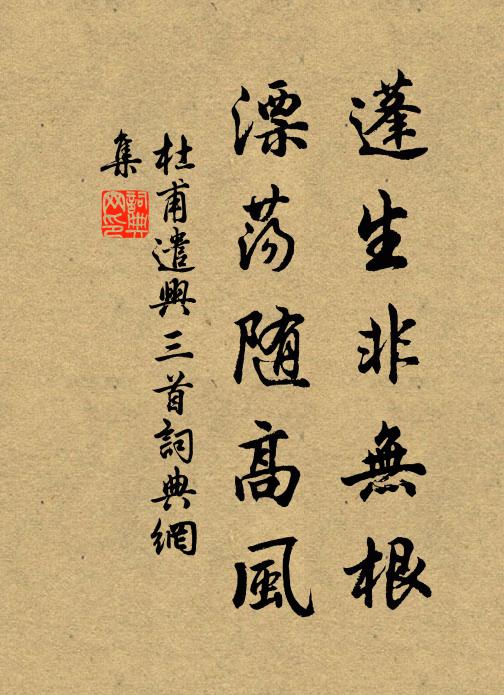 蓬生非無根
漂荡随高風
杜甫遣興三首詞典網
集
詞典网印